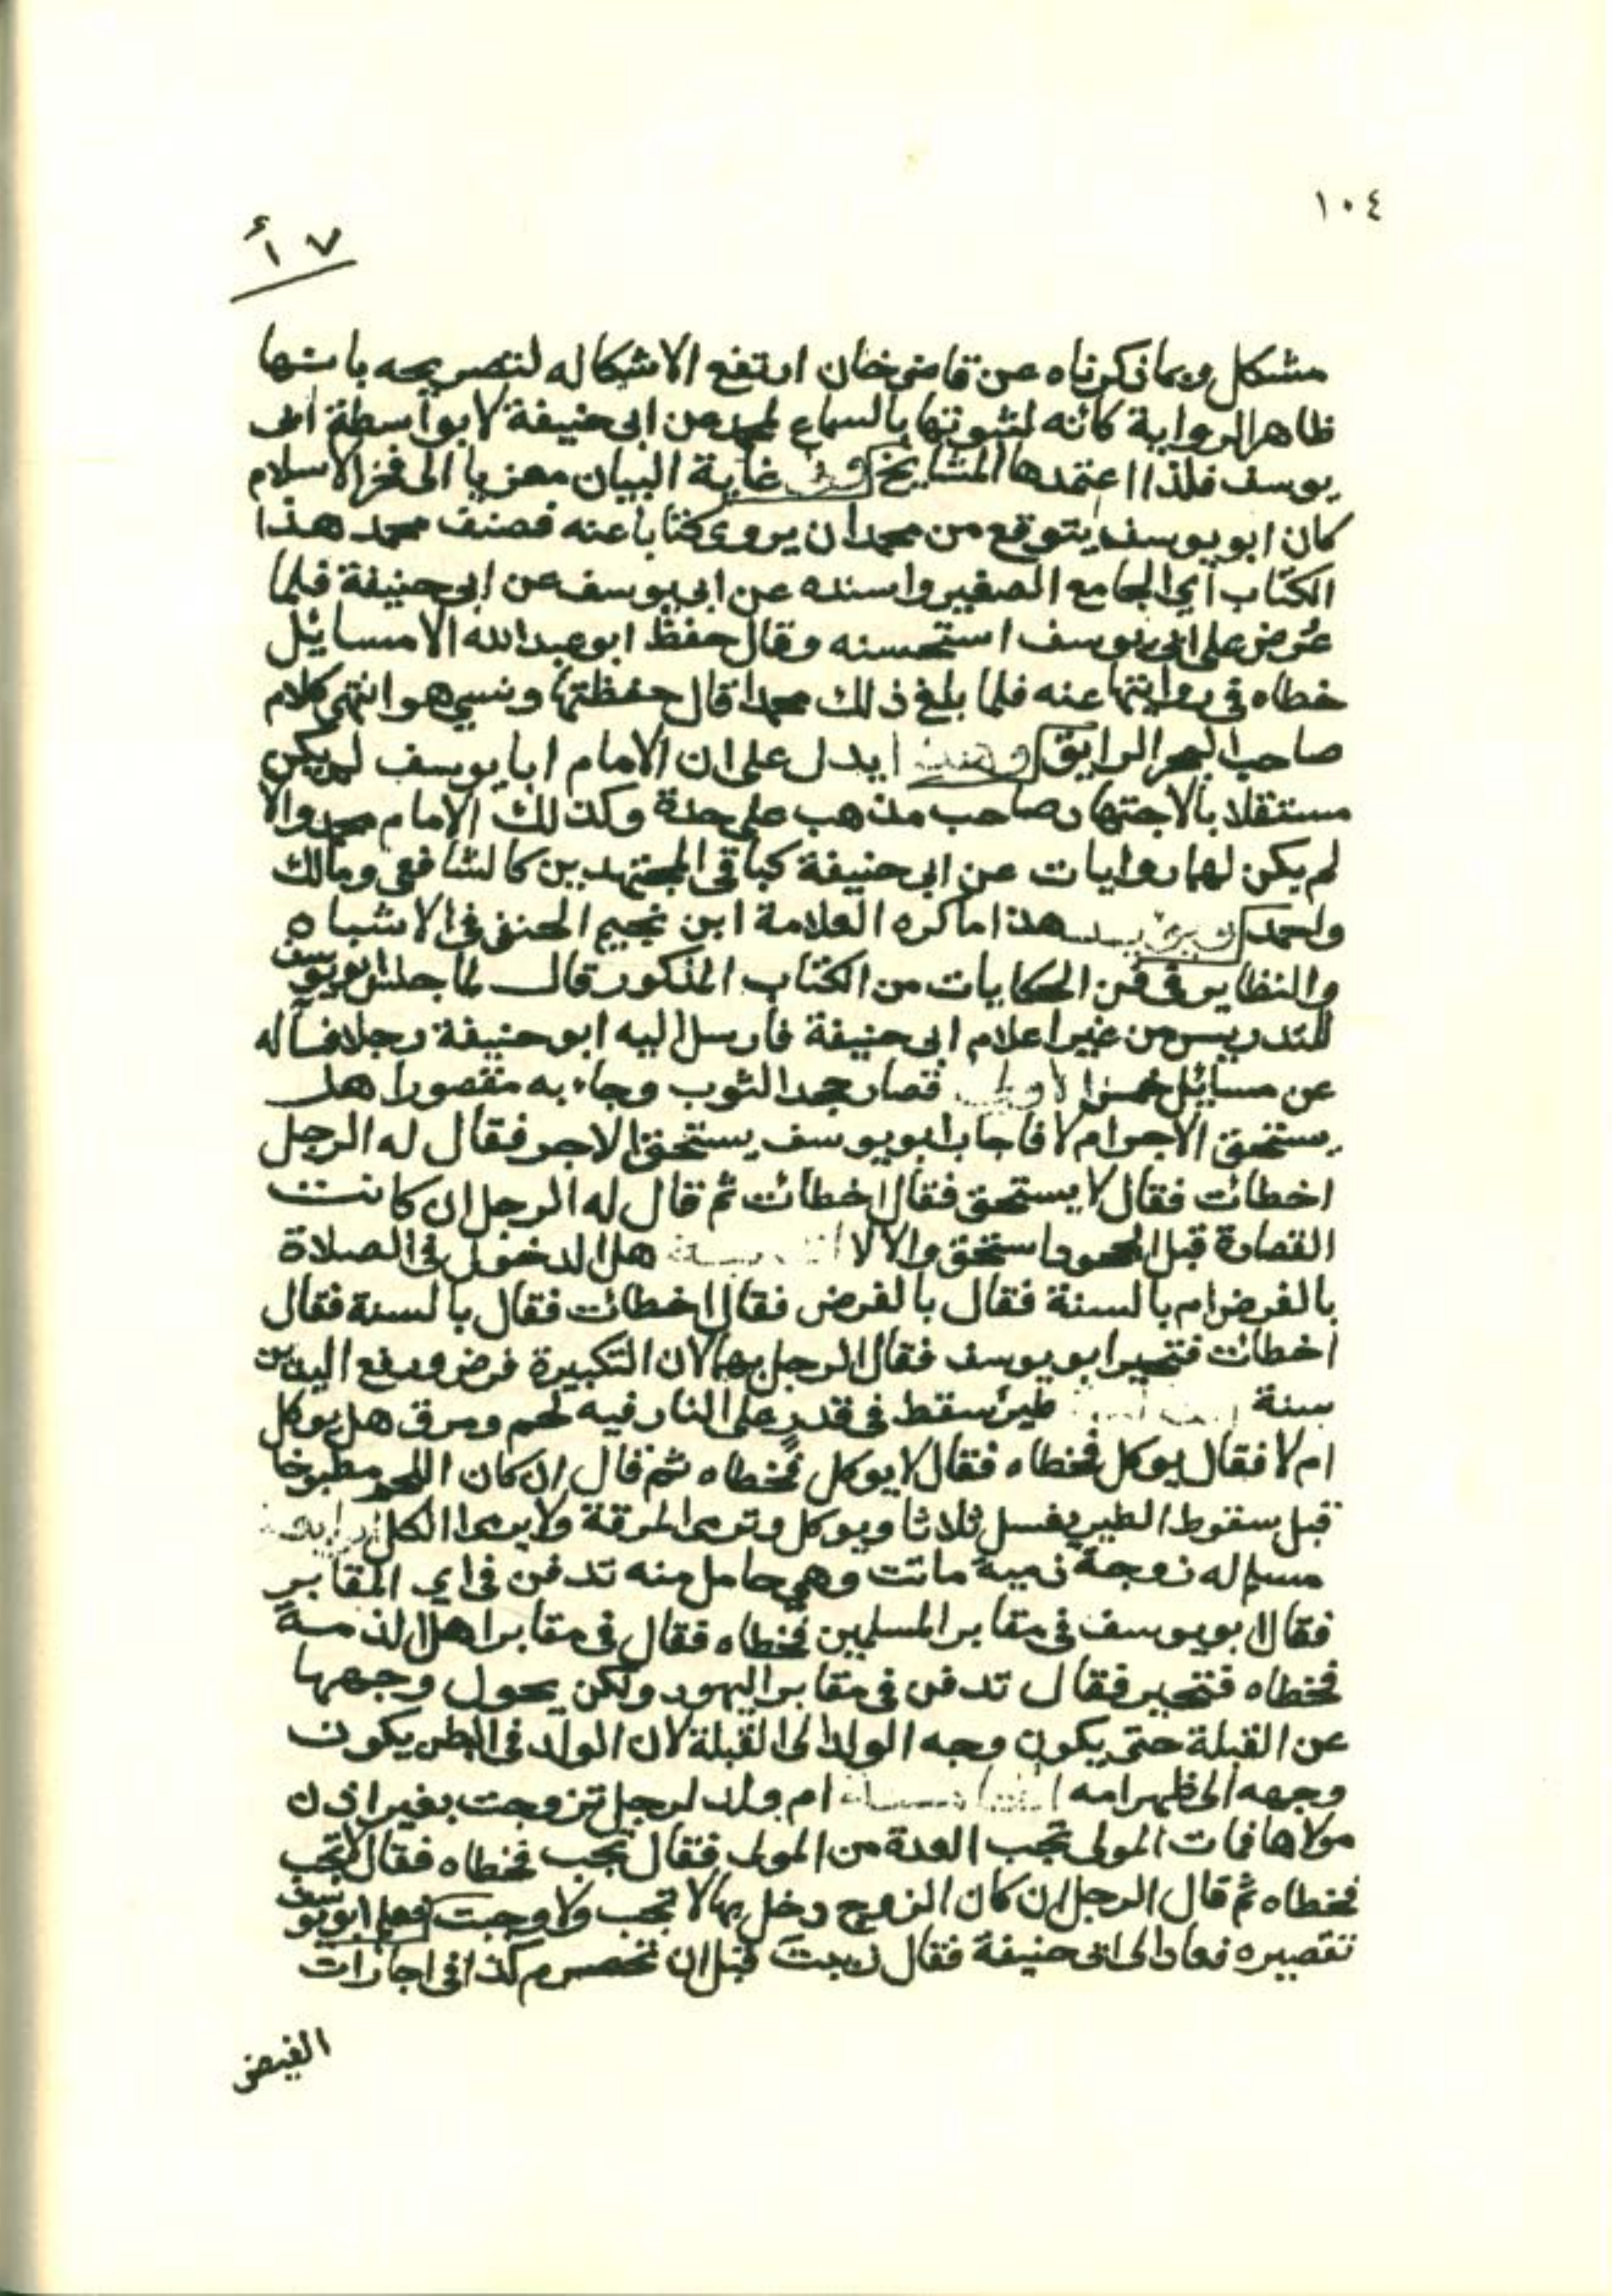 ١٠٤
١٧أ
مشكل وبما ذكرناه عن قاضى خان ارتفع الاشكاله لتصريحه بانها
ظاهر الرواية كانه لثبوتها بالسماع لمحمد من ابى حنيفة لا بواسطة ابى
يوسف فلذا اعتمدها المشايخ وفى غاية البيان معزيا الى فخر الاسلام
كان ابو يوسف يتوقع من محمد ان يروى كتابا عنه فصنف محمد هذا
الكتاب اي الجامع الصغير واسنده عن ابى يوسف عن ابى حنيفة فلما
عُرض على ابى يوسف استحسنه وقال حفظ ابو عبد الله الا مسائيل
خطاه فى روايتها عنه فلما بلغ ذلك محمدا قال حفظتها ونسي هو انتهى كلام
صاحب البحر الرايق وهذا يدل على ان الامام ابا يوسف لم يكن
مستقلا بالاجتهاد صاحب مذهب على حدة وكذلك الامام محمد والا
لم يكن لهما روايات عن ابى حنيفة كباقى المجتهدين كالشافعى ومالك
واحمد هذا ما كره العلامة ابن نجيم الحنفى فى الاشباه
والنظاير فى فن الحكايات من الكتاب المذكور قال لما جلس ابو يوسف
للتدريس من غير اعلام ابى حنيفة فارسل اليه ابو حنيفة رجلا فساله
عن مسائيل خمس الاولى قصار جحد الثوب وجاء به مقصورا هل
يستحق الاجر ام لا فاجاب ابو يوسف يستحق الاجر فقال له الرجل
اخطات فقال لا يستحق فقال اخطات ثم قال له الرجل ان كانت
القصارة قبل الجحود استحق والا لا هل الدخول فى الصلاة
بالفرض ام بالسنة فقال بالفرض فقال اخطات فقال بالسنة فقال
اخطات فتحير ابو يوسف فقال الرجل بهما لان التكبيرة فرض ورفع اليدين
سنة طير سقط فى قدر على النار فيه لحم ومرق هل يوكل
ام لا فقال يوكل فخطاه فقال لا يوكل فخطاه ثم قال ان كان اللحم مطبوخا
قبل سقوط الطير يغسل ثلاثا ويوكل وترمى المرقة ولا يرمى الكل الرابعة
مسلم له زوجة ذمية ماتت وهي حامل منه تدفن فى اي المقابر
فقال ابو يوسف فى مقابر المسلمين فخطاه فقال فى مقابر اهل الذمة
فخطاه فتحير فقال تدفن فى مقابر اليهود ولكن يحول وجهها
عن القبلة حتى يكون وجه الولد الى القبلة لان الولد فى البطن يكون
وجهه الى ظهر امه الخامسة ام ولد لرجل تزوجت بغير اذن
مولاها فمات المولى تجب العدة من المولى فقال تجب فخطاه فقال لا تجب
فخطاه ثم قال الرجل ان كان الزوج دخل بها لا تجب والا وجبت فعلم ابو يوسف
تقصيره فعاد الى ابى حنيفة فقال زببت قبل ان تحصرم كذا فى اجارات
الفيض